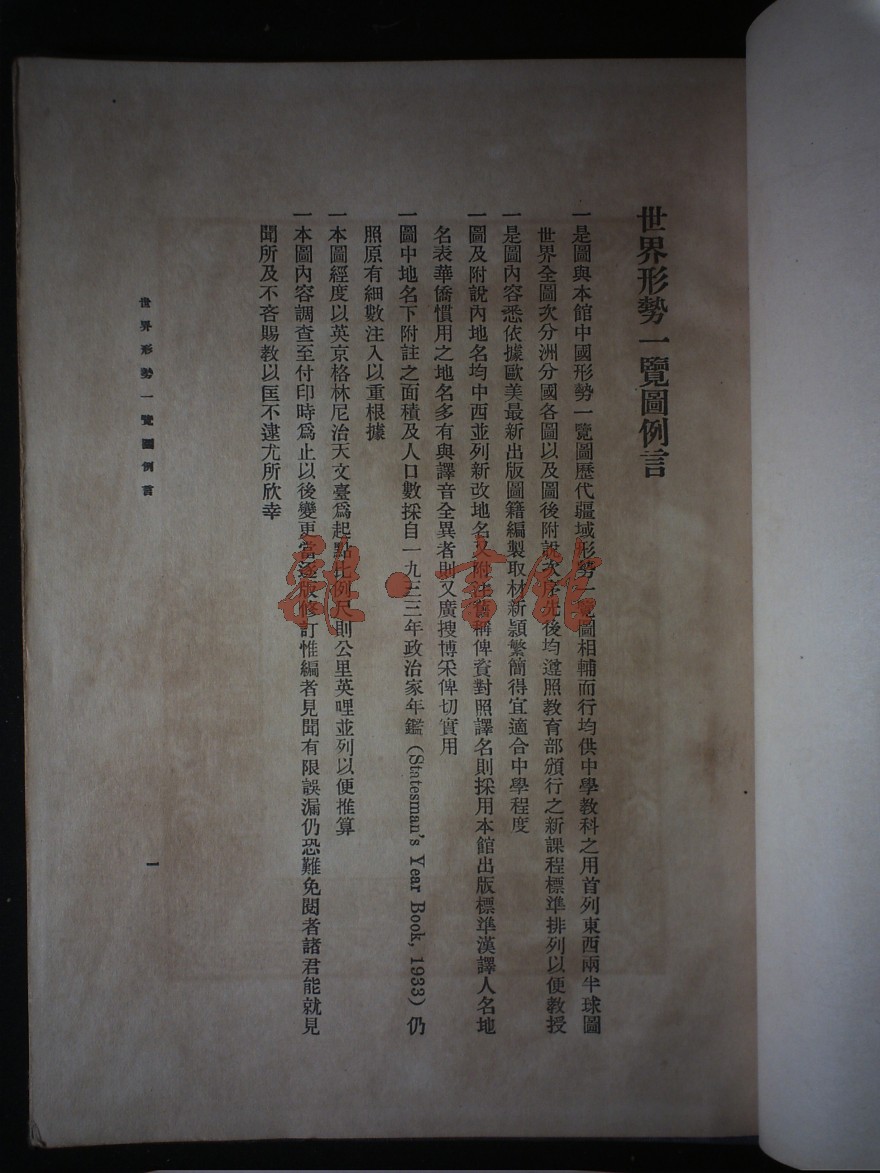 世界形勢一覽圖例言
一是圖與本館中國形勢一覽圖歷代疆域形勢一覽圖相輔而行均供中學教科之用首列東西兩半球圖
世界全圖次分洲分國各圖以及圖後附說次序先後均遵照教育部頒行之新課程標準排列以便教授
一是圖內容悉依據歐美最新出版圖籍編製取材新穎繁簡得宜適合中學程度
一圖及附說內地名均中西並列新改地名又附注舊稱俾資對照譯名則採用本館出版標準漢譯人名地
名表華僑慣用之地名多有與譯音全異者則又廣搜博采俾切實用
一圖中地名下附註之面積及人口數採自一九三三年政治家年鑑(Statesman's Year Book, 1933)仍
照原有細數注入以重根據
一本圖經度以英京格林尼治天文臺爲起點比例尺則公里英哩並列以便推算
一本圖內容調查至付印時爲止以後變更當逐版修訂惟編者見聞有限誤漏仍恐難免閱者諸君能就見
聞所及不吝賜教以匡不逮尤所欣幸
世界形勢一覽圖例言
一
雜·書館